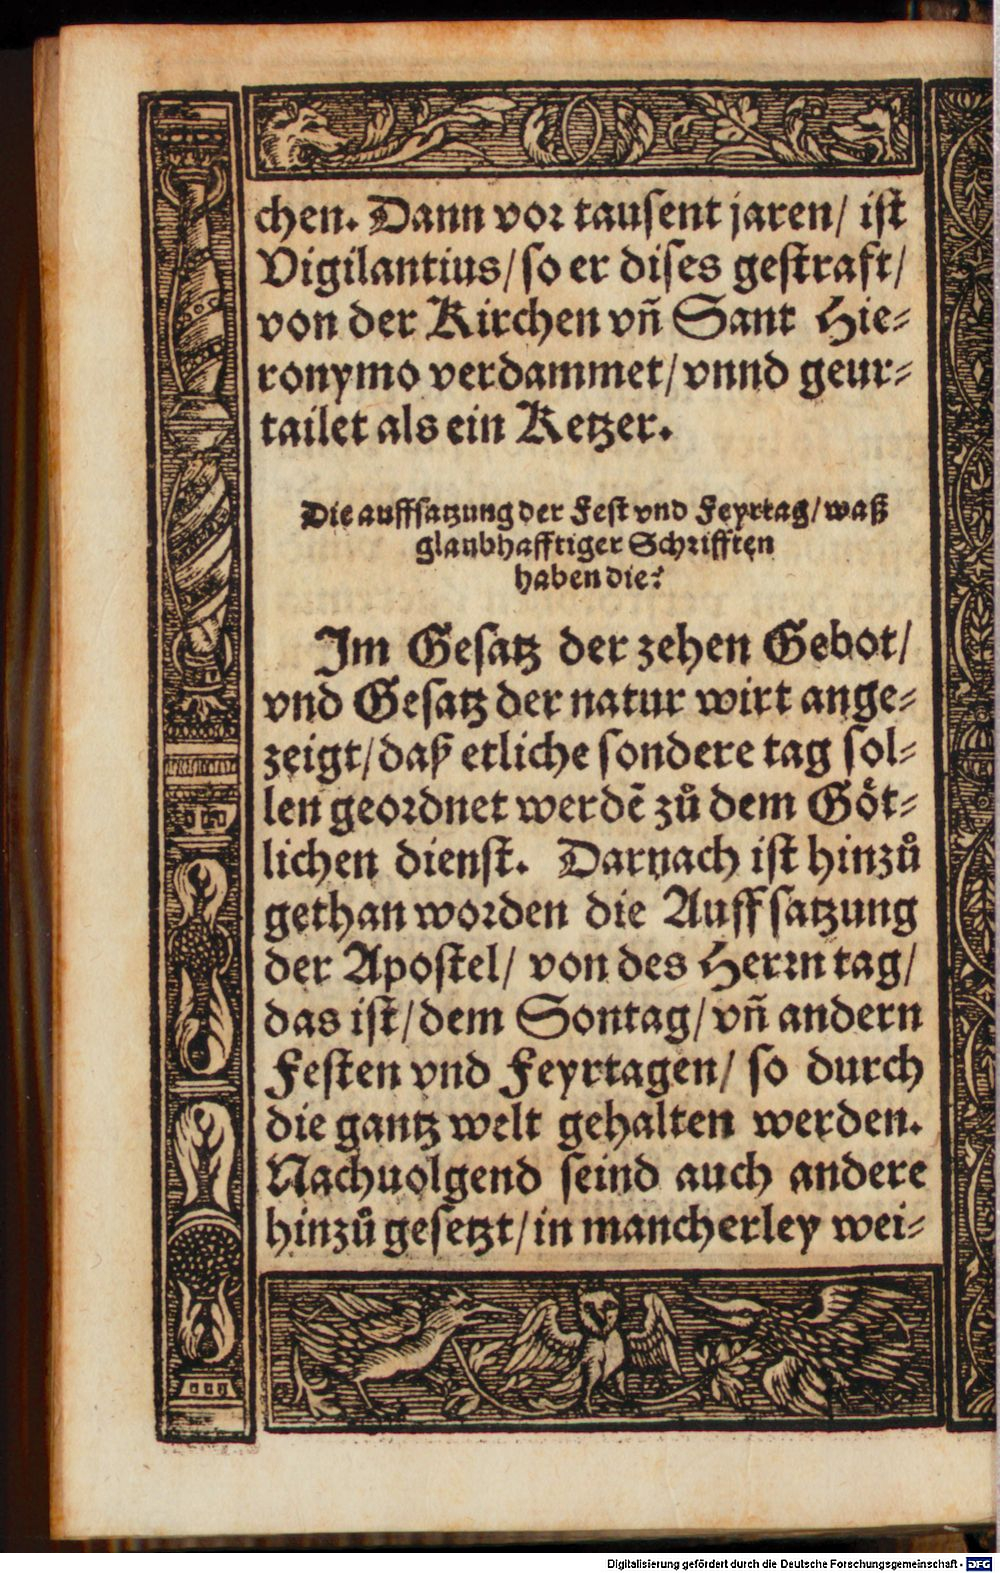 chen. Dann vor tausent jaren/ ist
Vigilantius/ so er dises gestraft/
von der Kirchen vñ Sant Hie⸗
ronymo verdammet/ vnnd geur⸗
tailet als ein Ketzer.
Die auffsatzung der Fest vnd Feyrtag/ waß
glaubhafftiger Schrifften
haben die?
Im Gesatz der zehen Gebot/
vnd Gesatz der natur wirt ange⸗
zeigt/ daß etliche sondere tag sol⸗
len geordnet werdē zů dem Göt⸗
lichen dienst. Darnach ist hinzů
gethan worden die Auffsatzung
der Apostel/ von des Herrn tag/
das ist/ dem Sontag/ vñ andern
Festen vnd Feyrtagen/ so durch
die gantz welt gehalten werden.
Nachuolgend seind auch andere
hinzů gesetzt/ in mancherley wei⸗
Digitalisierung gefördert durch die Deutsche Forschungsgemeinschaft - DFG